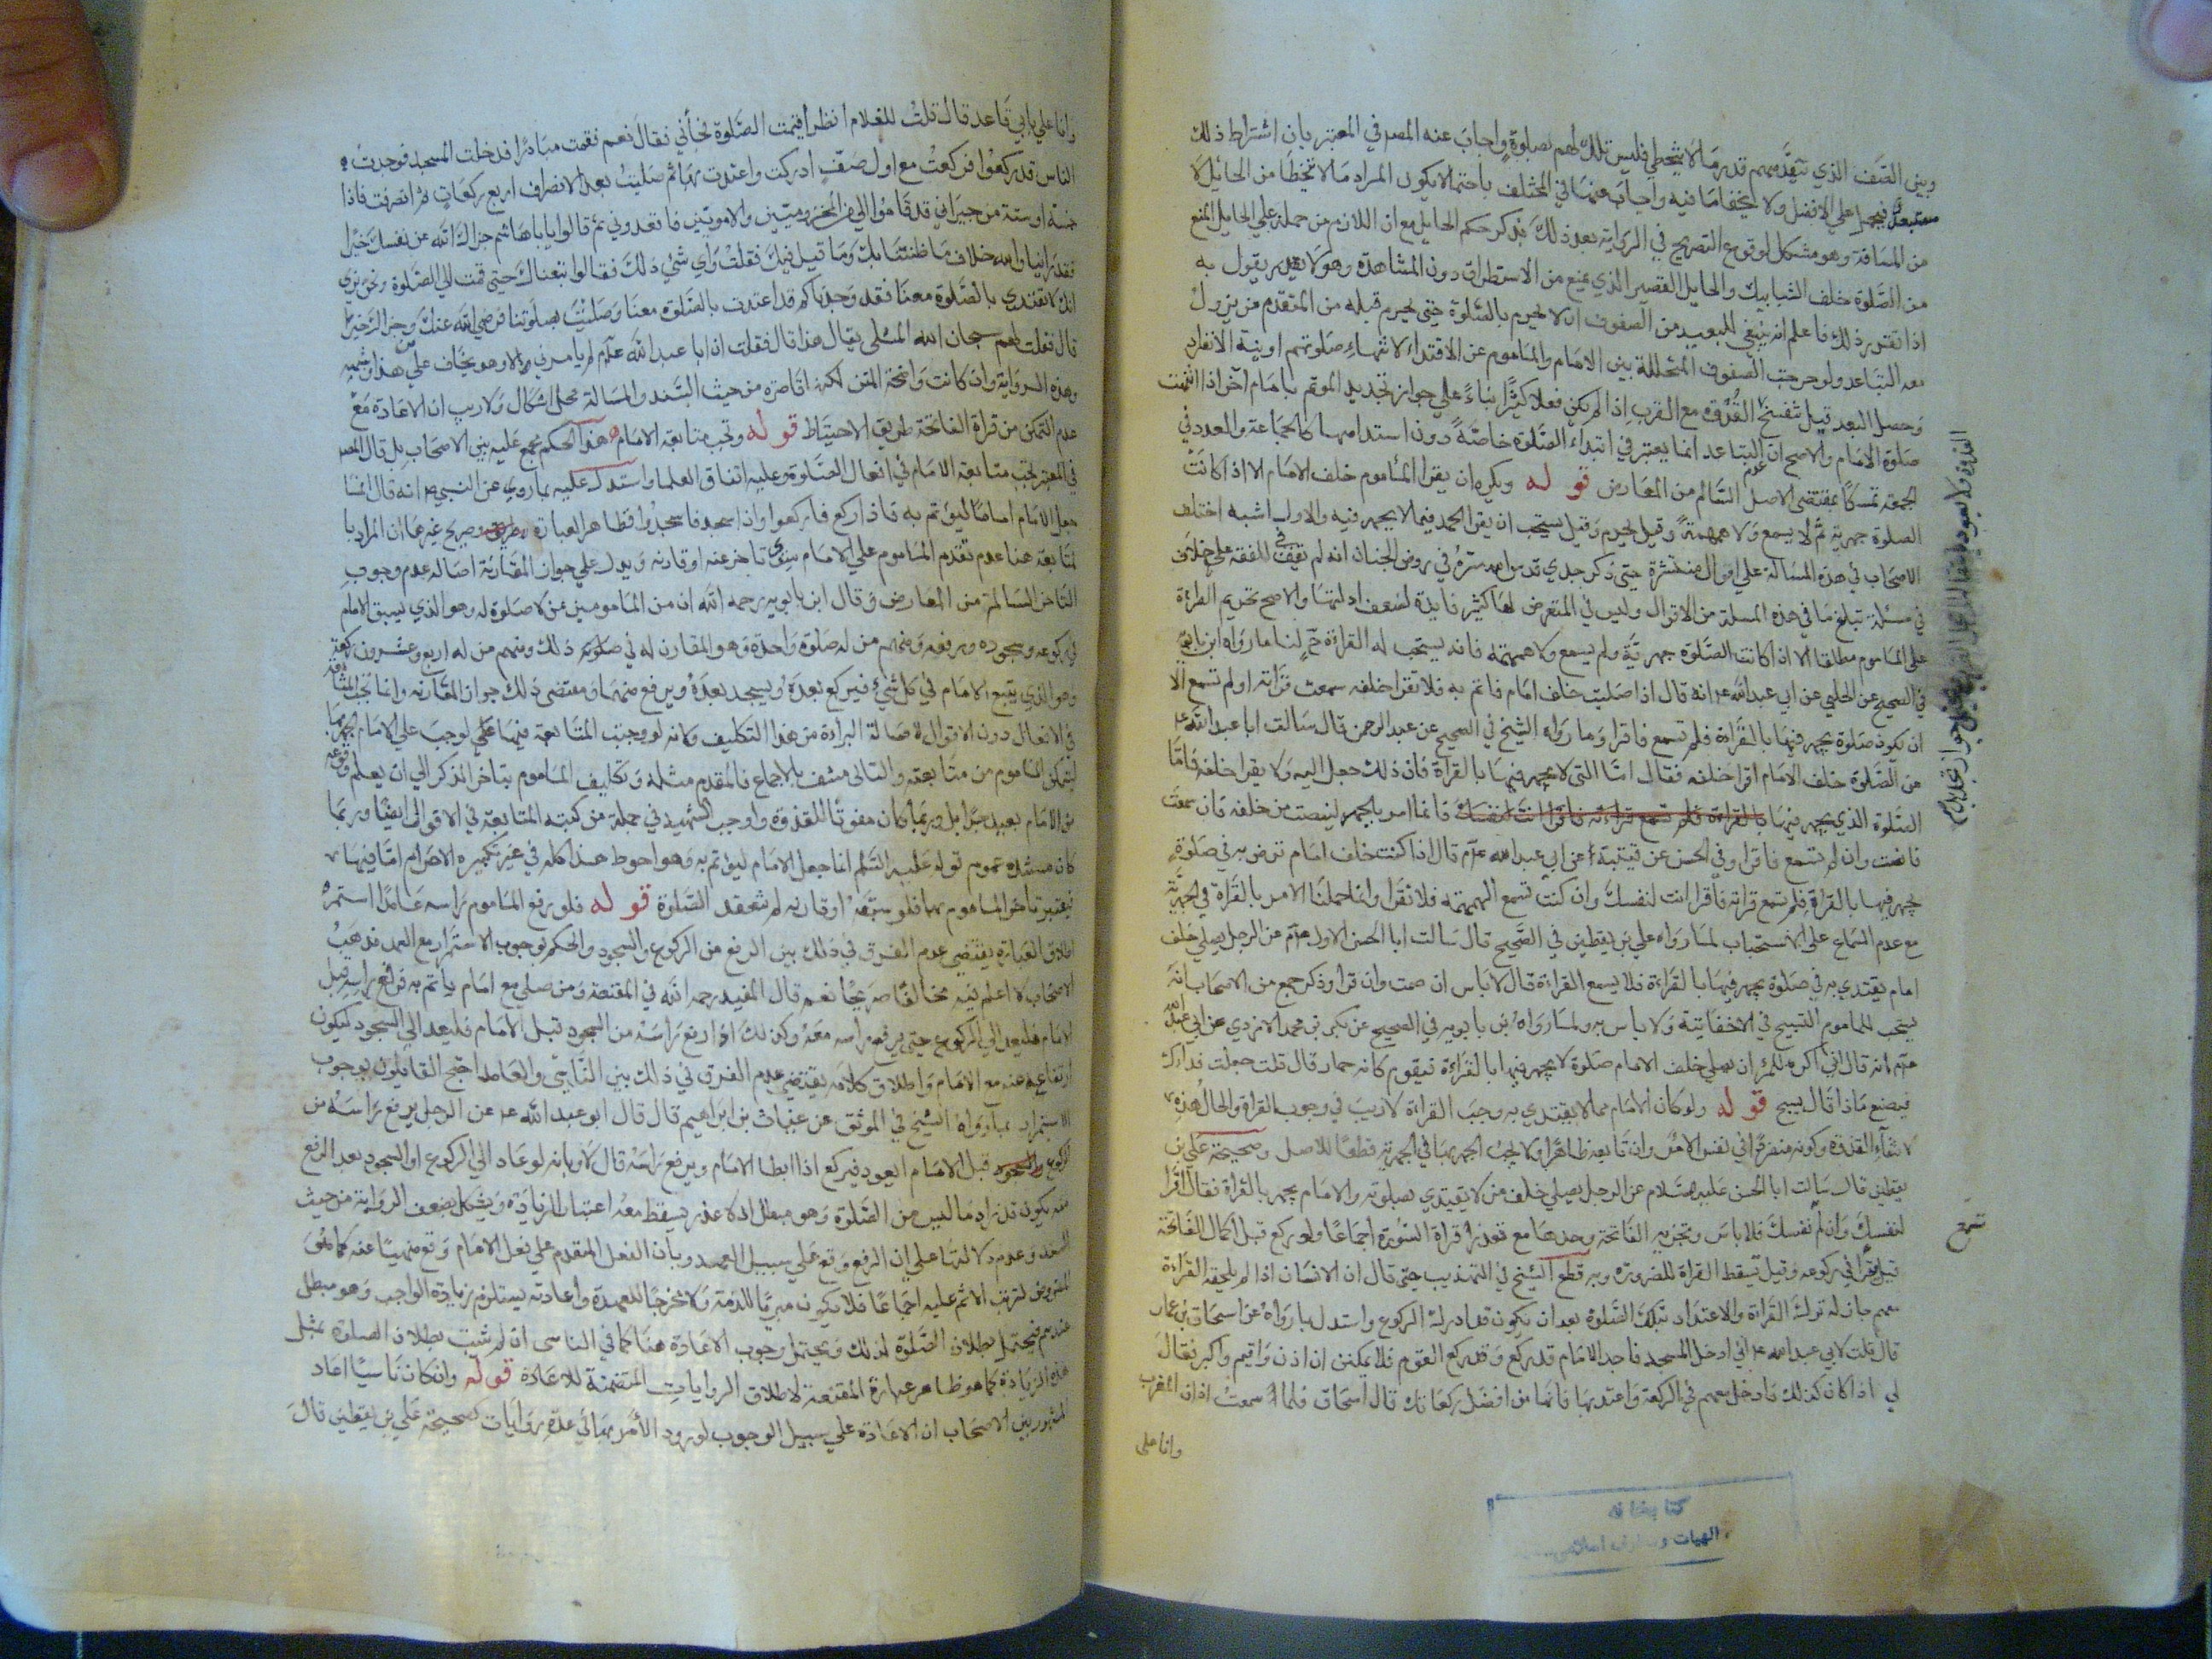 وبين الصف الذي يتقدمهم قدر ما لا يتخطى فليس تلك لهم بصلوة واجاب عنه المصر في المعتبر بان اشتراط ذلك
مستبعد فيحمل على الافضل ولا يخفى ما فيه واجاب عنها في المختلف باحتمال ان يكون المراد ما لا يتخطى من الحائل لا
من المسافة وهو مشكل لوقوع التصريح في الرواية بعد ذلك بذكر حكم الحايل مع ان اللازم من حمله على الحايل المنع
من الصلوة خلف الشبابيك والحايل القصير الذي يمنع من الاستطراق دون المشاهدة وهو لا يقول به
اذا تقرر ذلك فاعلم انه ينبغي للبعيد من الصفوف ان لا يحرم بالصلوة حتى يحرم قبله من المتقدم من يزول
معه التباعد ولو خرجت الصفوف المتخللة بين الامام والماموم عن الاقتداء لانتهاء صلوتهم او نية الانفراد
وحصل البعد قيل تنفسخ القدوة مع القرب اذا لم يكن فعلا كثيرا بناءً على جواز تجديد الموتم بامام آخر اذا انتهت
صلوة الامام والاصح ان عدم التباعد انما يعتبر في ابتداء الصلوة خاصةً دون استدامتها كالجماعة والعدد في
الجمعة تمسكا بمقتضى الاصل السالم من المعارض قوله ويكره ان يقرا المأموم خلف الامام الا اذا كانت
الصلوة جهرية ثم لا يسمع ولا همهمةً وقيل يحرم وقيل يستحب ان يقرا الحمد فيما لا يجهر فيه والاول اشبه اختلف
الاصحاب في هذه المسالة على اقوال منتشرة حتى ذكر جدي قدس الله سره في روض الجنان انه لم يقف في الفقه على خلاف
في مسئلة تبلغ ما في هذه المسئلة من الاقوال وليس في التعرض لها كثير فايدة لضعف ادلتها والاصح تحريم القراءة
على الماموم مطلقا الا اذا كانت الصلوة جهرية ولم يسمع ولا همهمة فانه يستحب له القراءة ح لنا ما رواه ابن بابويه
في الصحيح عن الحلبي عن ابي عبد الله ع انه قال اذا صليت خلف امام فاتم به فلا تقرا خلفه سمعت قراته او لم تسمع الا
ان يكون صلوة يجهر فيها بالقراءة فلم تسمع فاقرا وما رواه الشيخ في الصحيح عن عبد الرحمن قال سالت ابا عبد الله ع
عن الصلوة خلف الامام اقرا خلفه فقال اما التي لا يجهر فيها بالقراءة فان ذلك جعل اليه ولا يقرا خلفه فاما
الصلوة الذي يجهر فيها بالقراءة فلم تسمع قراءته فاقرا انت لنفسك فانما امر بالجهر لينصت من خلفه فان سمعت
فانصت وان لم تسمع فاقرا وفي الحسن عن قتيبة عن ابي عبد الله عم قال اذا كنت خلف امام ترضى به في صلوة
يجهر فيها بالقراة فلم تسمع قراته فاقرا انت لنفسك وان كنت تسمع الهمهمة فلا تقرا وانما حملنا الامر بالقراة في الجهرية
مع عدم السماع على الاستحباب لما رواه علي بن يقطين في الصحيح قال سالت ابا الحسن الاول عم عن الرجل يصلي خلف
امام يقتدي به في صلوة يجهر فيها بالقراءة فلا يسمع القراءة قال لا باس ان صمت وان قرا وذكر جمع من الاصحاب انه
يستحب للماموم التسبيح في الاخفاتية ولا باس به ولما رواه بن بابويه في الصحيح عن بكر بن محمد الازدي عن ابي عبد الله
عم انه قال اني اكره للمرء ان يصلي خلف الامام صلوة لا يجهر فيها بالقراءة فيقوم كانه حمار قال قلت جعلت فداك
فيصنع ماذا قال يسبح قوله ولو كان الامام ممن لا يقتدي به وجبت القراءة لا ريب في وجوب القراة والحال هذه
لانتفاء القدوة وكونه منفردا في نفس الامر وان تابعه ظاهرا ولا يجب الجهر بها في الجهرية قطعا للاصل وصحيحة علي بن
يقطين قال سالت ابا الحسن عليه السلام عن الرجل يصلي خلف من لا يقتدي بصلوته والامام يجهر بالقراة فقال اقرا
لنفسك وان لم نفسك فلا باس وتجزيه الفاتحة وحدها مع تعذر قراة السورة اجماعا ولو ركع قبل اكمال الفاتحة
تسمع
قيل يقرا في ركوعه وقيل تسقط القراة للضرورة وبه قطع الشيخ في التهذيب حتى قال ان الانسان اذا لم يلحقه القراءة
معهم جاز له ترك القراءة والاعتداد بتلك الصلوة بعد ان يكون قد ادرك الركوع واستدل بما رواه عن اسحاق بن عمار
قال قلت لابي عبد الله ع اني ادخل المسجد فاجد الامام قد ركع وقد ركع القوم فلا يمكنني ان اذن واقيم واكبر فقال
لي اذا كان كذلك فادخل معهم في الركعة واعتد بها فانها من افضل ركعاتك قال اسحاق فلما سمعت اذان المغرب
وانا على
كتابخانه
الهيات و معارف اسلامی
وانا على بابي قاعد قال قلت للغلام انظر اقيمت الصلوة فجأني فقال نعم فقمت مبادرا فدخلت المسجد فوجدت
الناس قد ركعوا فركعت مع اول صف ادركت واعتدت بها ثم صليت بعد الانصراف اربع ركعات ثم انصرفت فاذا
خمسة او ستة من جيراني قد قاموا الي من المخزوميين والامويين فاقعدوني ثم قالوا يا با هاشم جزاك الله عن نفسك خيرا
فقد راينا والله خلاف ما ظننا بك وما قيل فيك فقلت واي شيء ذلك فقالوا تبعناك حتى قمت الى الصلوة ونحن نرى
انك لا تقتدي بالصلوة معنا فقد وجدناك قد اعتدت بالصلوة معنا وصليت بصلوتنا فرضي الله عنك وجزاك خيرا
قال فقلت لهم سبحان الله المثلي يقال هذا قال فقلت ان ابا عبد الله عم لم يامرني الا وهو يخاف علي هذا وشبهه
وهذه الرواية وان كانت واضحة المتن لكنها قاصرة من حيث السند والمسالة محل اشكال ولا ريب ان الاعادة مع
عدم التمكن من قراة الفاتحة طريق الاحتياط قوله وتجب متابعة الامام هذا الحكم مجمع عليه بين الاصحاب بل قال المصر
في المعتبر تجب متابعة الامام في افعال الصلوة وعليه اتفاق العلما واستدل عليه بما روي عن النبي ص انه قال انما
جعل الامام اماما ليؤتم به فاذا ركع فاركعوا واذا سجد فاسجدوا وظاهر العبارة وصريح غيرها ان المراد با
لمتابعة هنا عدم تقدم الماموم على الامام سوى تاخر عنه او قارنه ويدل على جواز المقارنة اصالة عدم وجوب
التاخر السالمة من المعارض وقال ابن بابويه رحمه الله ان من المامومين من لا صلوة له وهو الذي يسبق الامام
في ركوعه وسجوده ورفعه ومنهم من له صلوة واحدة وهو المقارن له في ذلك ومنهم من له اربع وعشرون ركعة
وهو الذي يتبع الامام في كل شيء فيركع بعده ويسجد بعده ويرفع منهما ومقتضى ذلك جواز المقارنة وانما تجب المتابعة
في الافعال دون الاقوال لاصالة البراءة من هذا التكليف ولانه لو وجبت المتابعة فيها لوجب على الامام الجهر بها
ليتمكن الماموم من متابعته والتالى منتف بالاجماع فالمقدم مثله وتكليف الماموم بتاخر الذكر الى ان يعلم وقوعه
من الامام بعيد جدا بل ربما كان مفوتا للقدوة واوجب الشهيد في جملة من كتبه المتابعة في الاقوال ايضا وربما
كان مستنده عموم قوله عليه السلم انما جعل الامام ليؤتم به وهو احوط هذا كله في غير تكبيره الاحرام اما فيها
فيعتبر تاخر الماموم بها فلو سبقه او قارنه لم تنعقد الصلوة قوله فلو رفع الماموم راسه عامدا استمر
اطلاق العبارة يقتضي عدم الفرق في ذلك بين الرفع من الركوع والسجود والحكم بوجوب الاستمرار مع العمد مذهب
الاصحاب لا اعلم فيه مخالفا صريحا نعم قال المفيد رحمه الله في المقنعة ومن صلى مع امام ياتم به فرفع راسه قبل
الامام فليعد الى الركوع حتى يرفع راسه معه وكذلك اذا رفع راسه من السجود قبل الامام فليعد الى السجود ليكون
ارتفاعه عنه مع الامام واطلاق كلامه يقتضي عدم الفرق في ذلك بين الناسي والعامد احتج القايلون بوجوب
الاستمرار بما رواه الشيخ في الموثق عن غياث بن ابراهيم قال قال ابو عبد الله ع عن الرجل يرفع راسه من
الركوع والسجود قبل الامام ايعود فيركع اذا ابطا الامام ويرفع راسه قال لا وبانه لو عاد الى الركوع او السجود بعد الرفع
منه يكون قد زاد ما ليس من الصلوة وهو مبطل اذ لا عذر يسقط معه اعتبار الزيادة ويشكل بضعف الرواية من حيث
السند وعدم دلالتها على ان الرفع وقع على سبيل العمد وبان الفعل المتقدم على فعل الامام وقع منهيا عنه كما هو
المفروض لترتب الاثم عليه اجماعا فلا يكون مبريا للذمة ولا مخرجا للعهدة واعادته يستلزم زيادة الواجب وهو مبطل
عندهم فيحتمل بطلان الصلوة لذلك ويحتمل وجوب الاعادة هنا كما في الناسي ان لم يثبت بطلان الصلوة بمثل
هذه الزيادة كما هو ظاهر عبارة المقنعة لاطلاق الروايات المتضمنة للاعادة قوله وان كان ناسيا اعاد
المشهور بين الاصحاب ان الاعادة على سبيل الوجوب لورود الأمر بها في عدة روايات كصحيحة علي بن يقطين قال